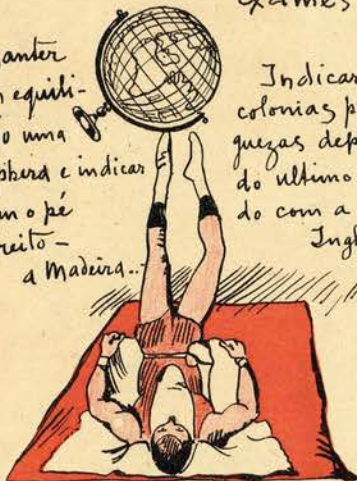 exames
anter
equili-
o uma
phera e indicar
o pé
reito -
a Madeira...
Indicar
colonias p
guezas dep
do ultimo
do com a
Ingl